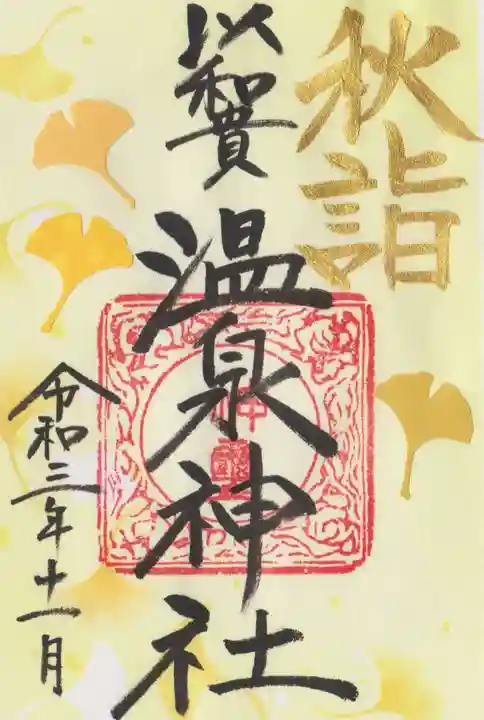 秋詣
以和貴
温泉神社
令和三年十一月